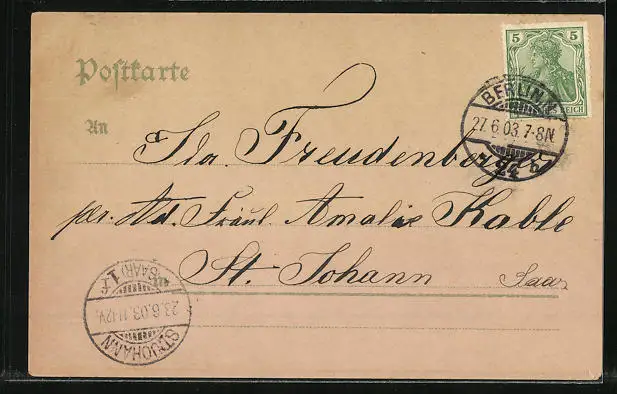 Postkarte
5
REICH
BERLIN N
27.6.03.7-8N.
24 b
An
Ida Freudenberger
pr. Ad. Fräul. Amalie Kable
St. Johann Saar
(SAAR) 1.f
23.6.03.11-12V.
ST. JOHANN